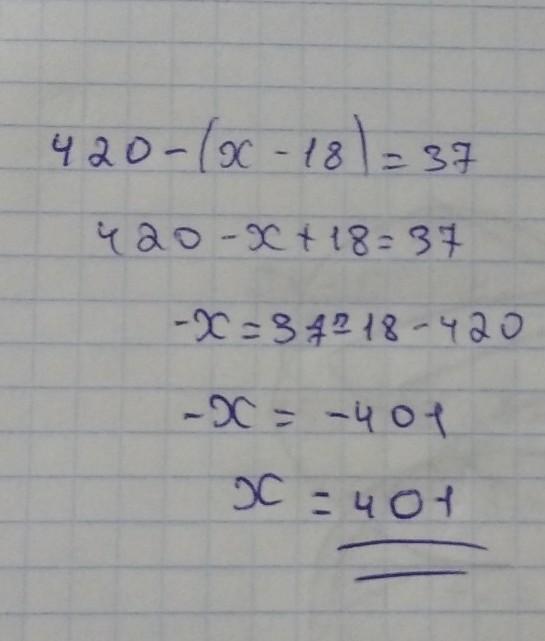 420-(x-18)=37
420-x+18=37
-x=37-18-420
-x=-401
x=401